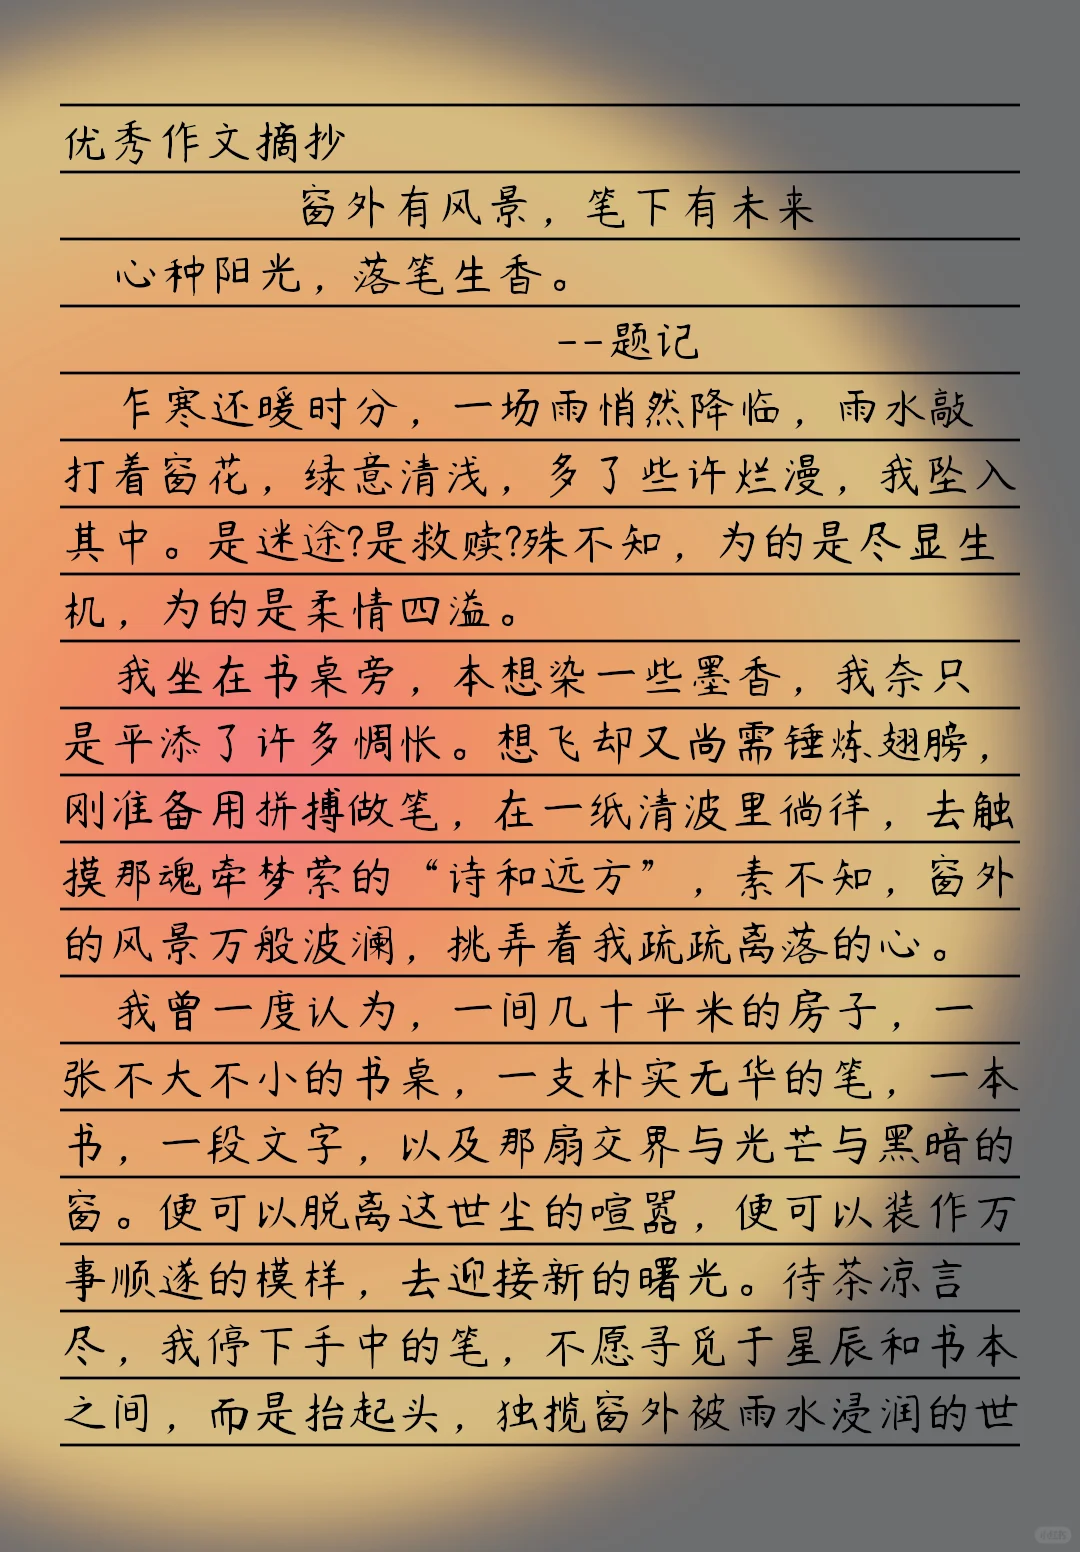 优秀作文摘抄
窗外有风景，笔下有未来
心种阳光，落笔生香。
--题记
乍寒还暖时分，一场雨悄然降临，雨水敲
打着窗花，绿意清浅，多了些许烂漫，我坠入
其中。是迷途?是救赎?殊不知，为的是尽显生
机，为的是柔情四溢。
我坐在书桌旁，本想染一些墨香，我奈只
是平添了许多惆怅。想飞却又尚需锤炼翅膀，
刚准备用拼搏做笔，在一纸清波里徜徉，去触
摸那魂牵梦萦的“诗和远方”，素不知，窗外
的风景万般波澜，挑弄着我疏疏离落的心。
我曾一度认为，一间几十平米的房子，一
张不大不小的书桌，一支朴实无华的笔，一本
书，一段文字，以及那扇交界与光芒与黑暗的
窗。便可以脱离这世尘的喧嚣，便可以装作万
事顺遂的模样，去迎接新的曙光。待茶凉言
尽，我停下手中的笔，不愿寻觅于星辰和书本
之间，而是抬起头，独揽窗外被雨水浸润的世